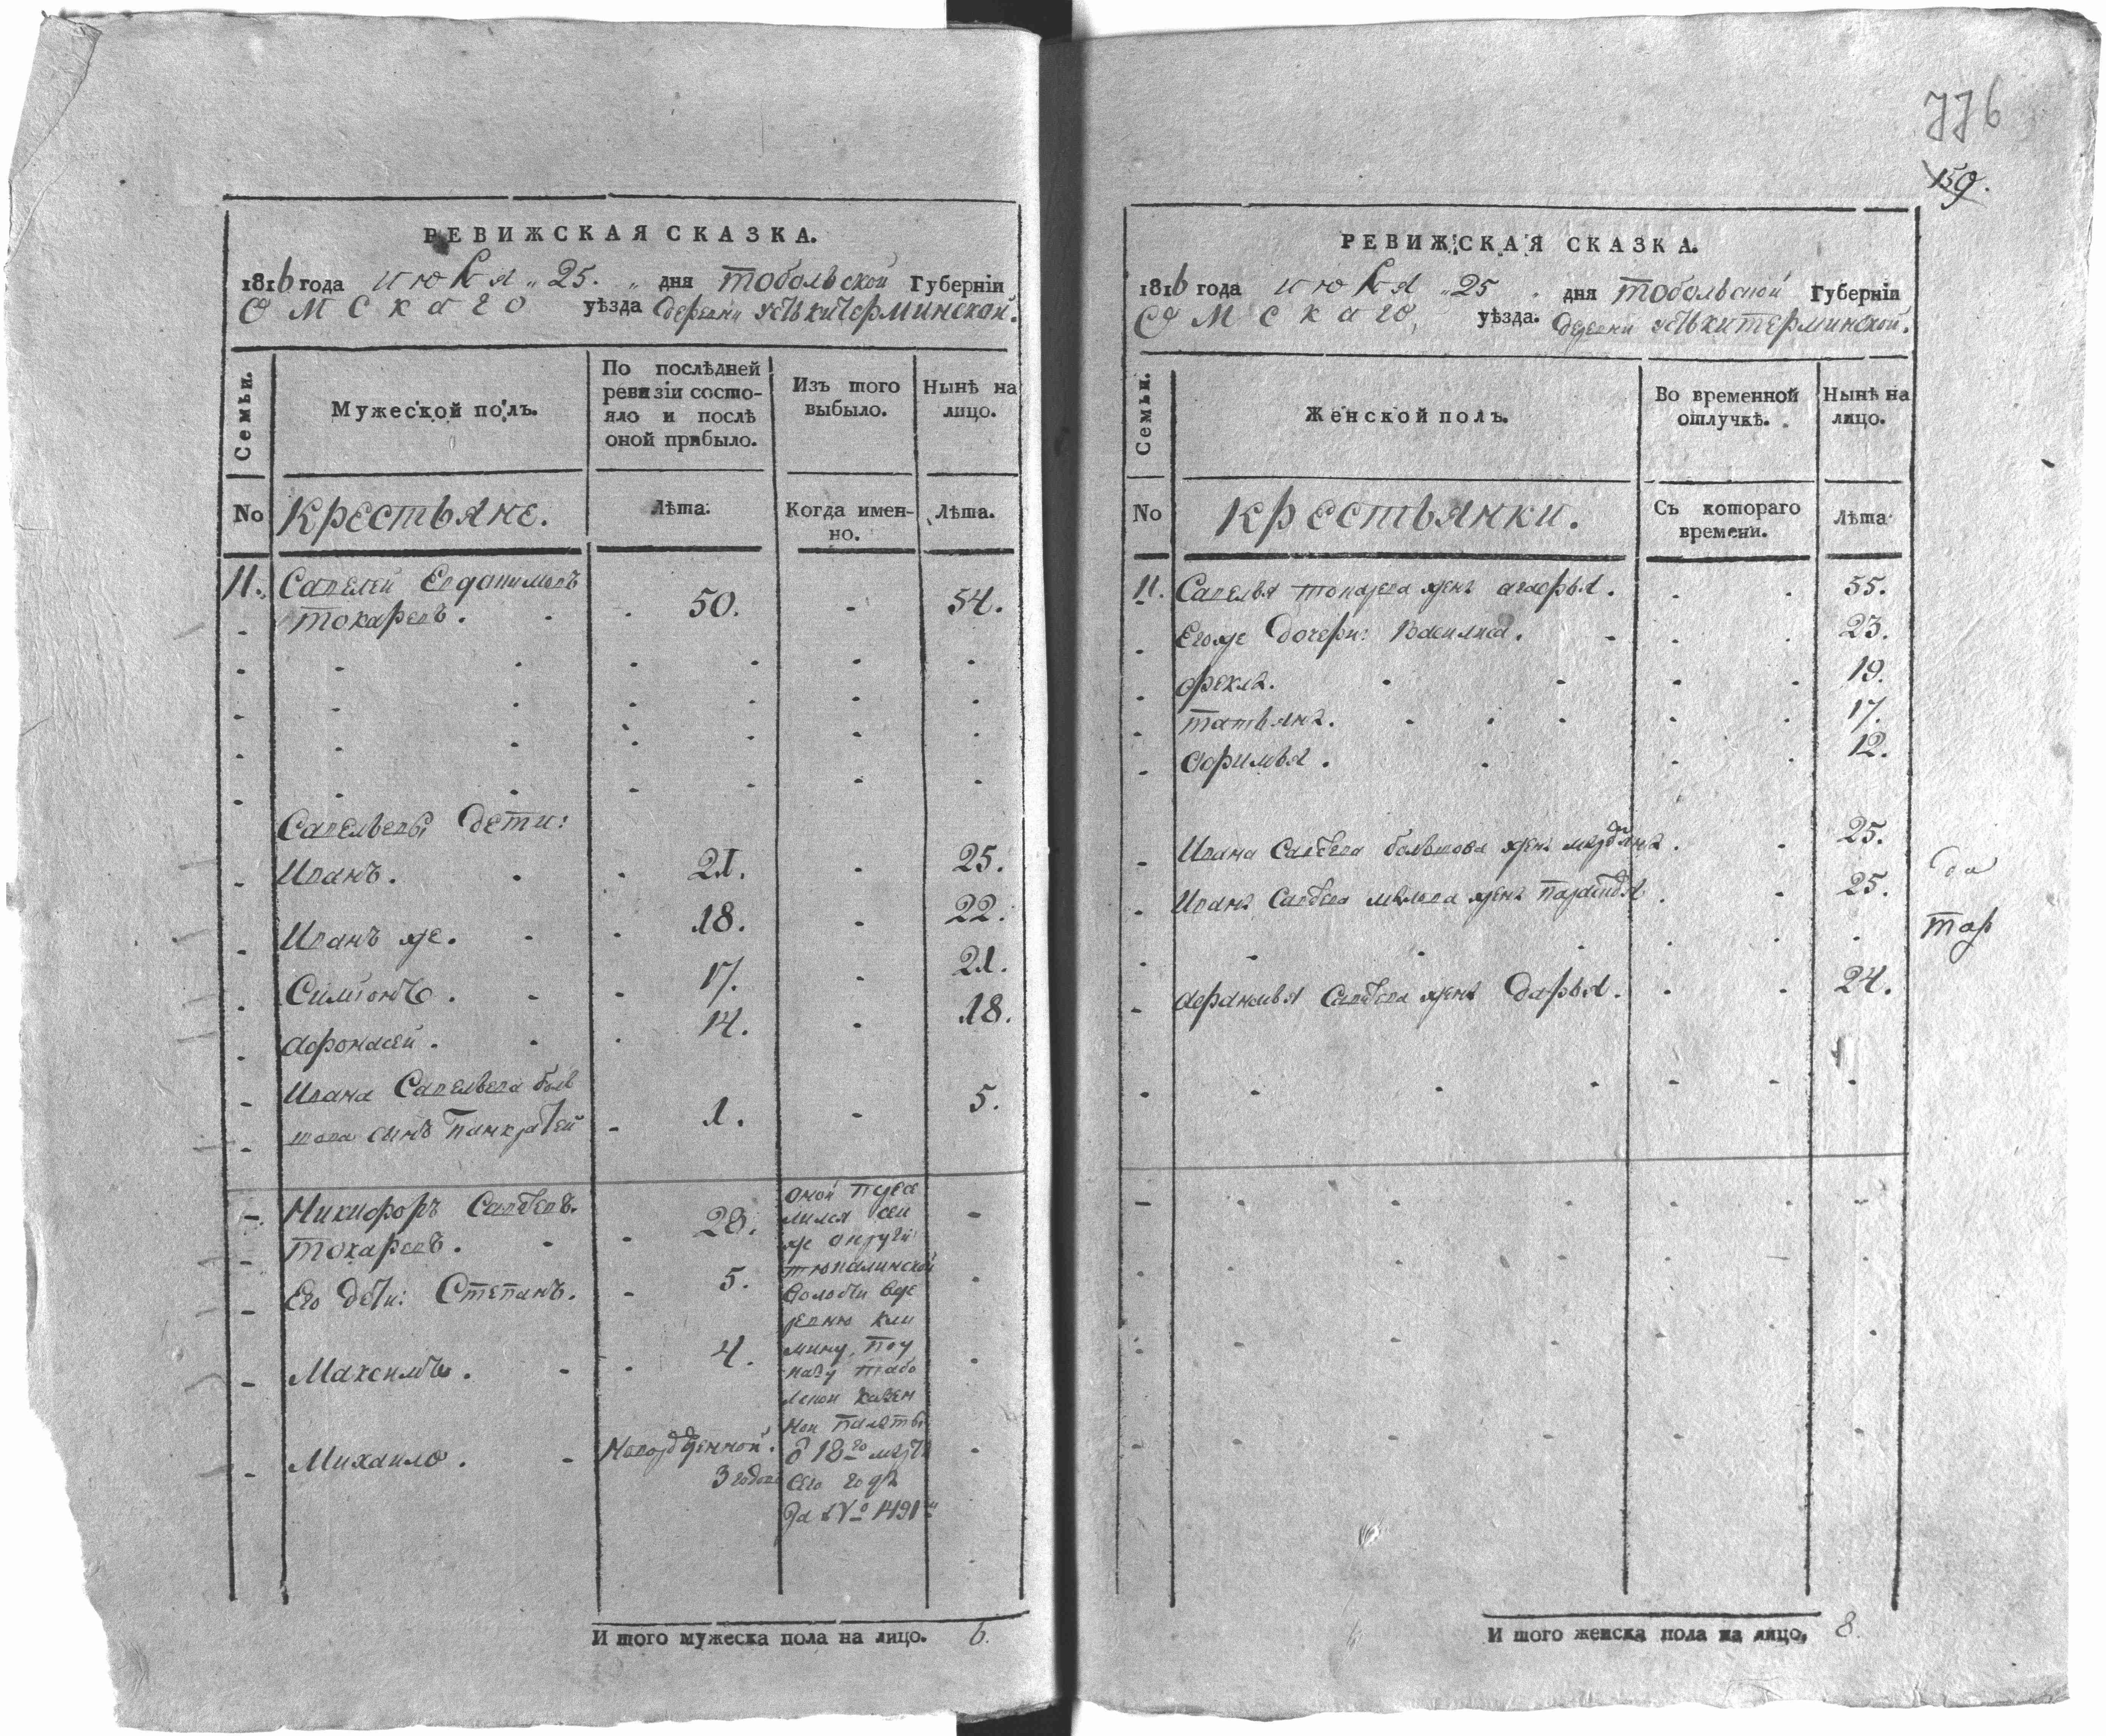 РЕВИЖСКАЯ СКАЗКА.
1816 года июня „ 25. „ дня тобольской Губерніи
Омскаго уѣзда деревни усть китерминской.
Семьи.
Мужеской полъ.
По послѣдней ревизіи состояло и послѣ оной прибыло.
Изъ того выбыло.
Нынѣ на лицо.
No крестьяне.
Лѣта.
Когда именно.
Лѣта.
11. Савелей Евдокимовъ
токаревъ. 50. 54.
Савельевы дети:
Иванъ. 21. 25.
Иванъ же. 18. 22.
Симионъ. 17. 21.
Афонасей. 14. 18.
Ивана Савельева боль
шова сынъ Панкратей 1. 5.
Никифоръ Савельевъ
токаревъ. 28.
Его дети: Степанъ. 5.
Максимъ. 4.
Михаило. Новорожденной. 3 годовъ
оной пересе
лился сей
же округи
тюкалинской
волости вде
ревню
по у
казу тобо
лской казен
ной палаты
18го марта
сего года
за No 1491м
И того мужеска пола на лицо. 6.
776
159.
РЕВИЖСКАЯ СКАЗКА.
1816 года июня „ 25 „ дня тобольской Губерніи
Омскаго, уѣзда. деревни усть китерминской.
Семьи.
Женской полъ.
Во временной отлучкѣ.
Нынѣ на лицо.
No крестьянки.
Съ котораго времени.
Лѣта
11. Савелья токарева жена агафья. 55.
Егоже дочери: Василиса. 23.
Фекла. 19.
татьяна. 17.
Афимья. 12.
Ивана Савельева большова жена 25.
Ивана Савельева жена 25.
Савельева жена дарья. 24.
И того женска пола на лицо, 8.